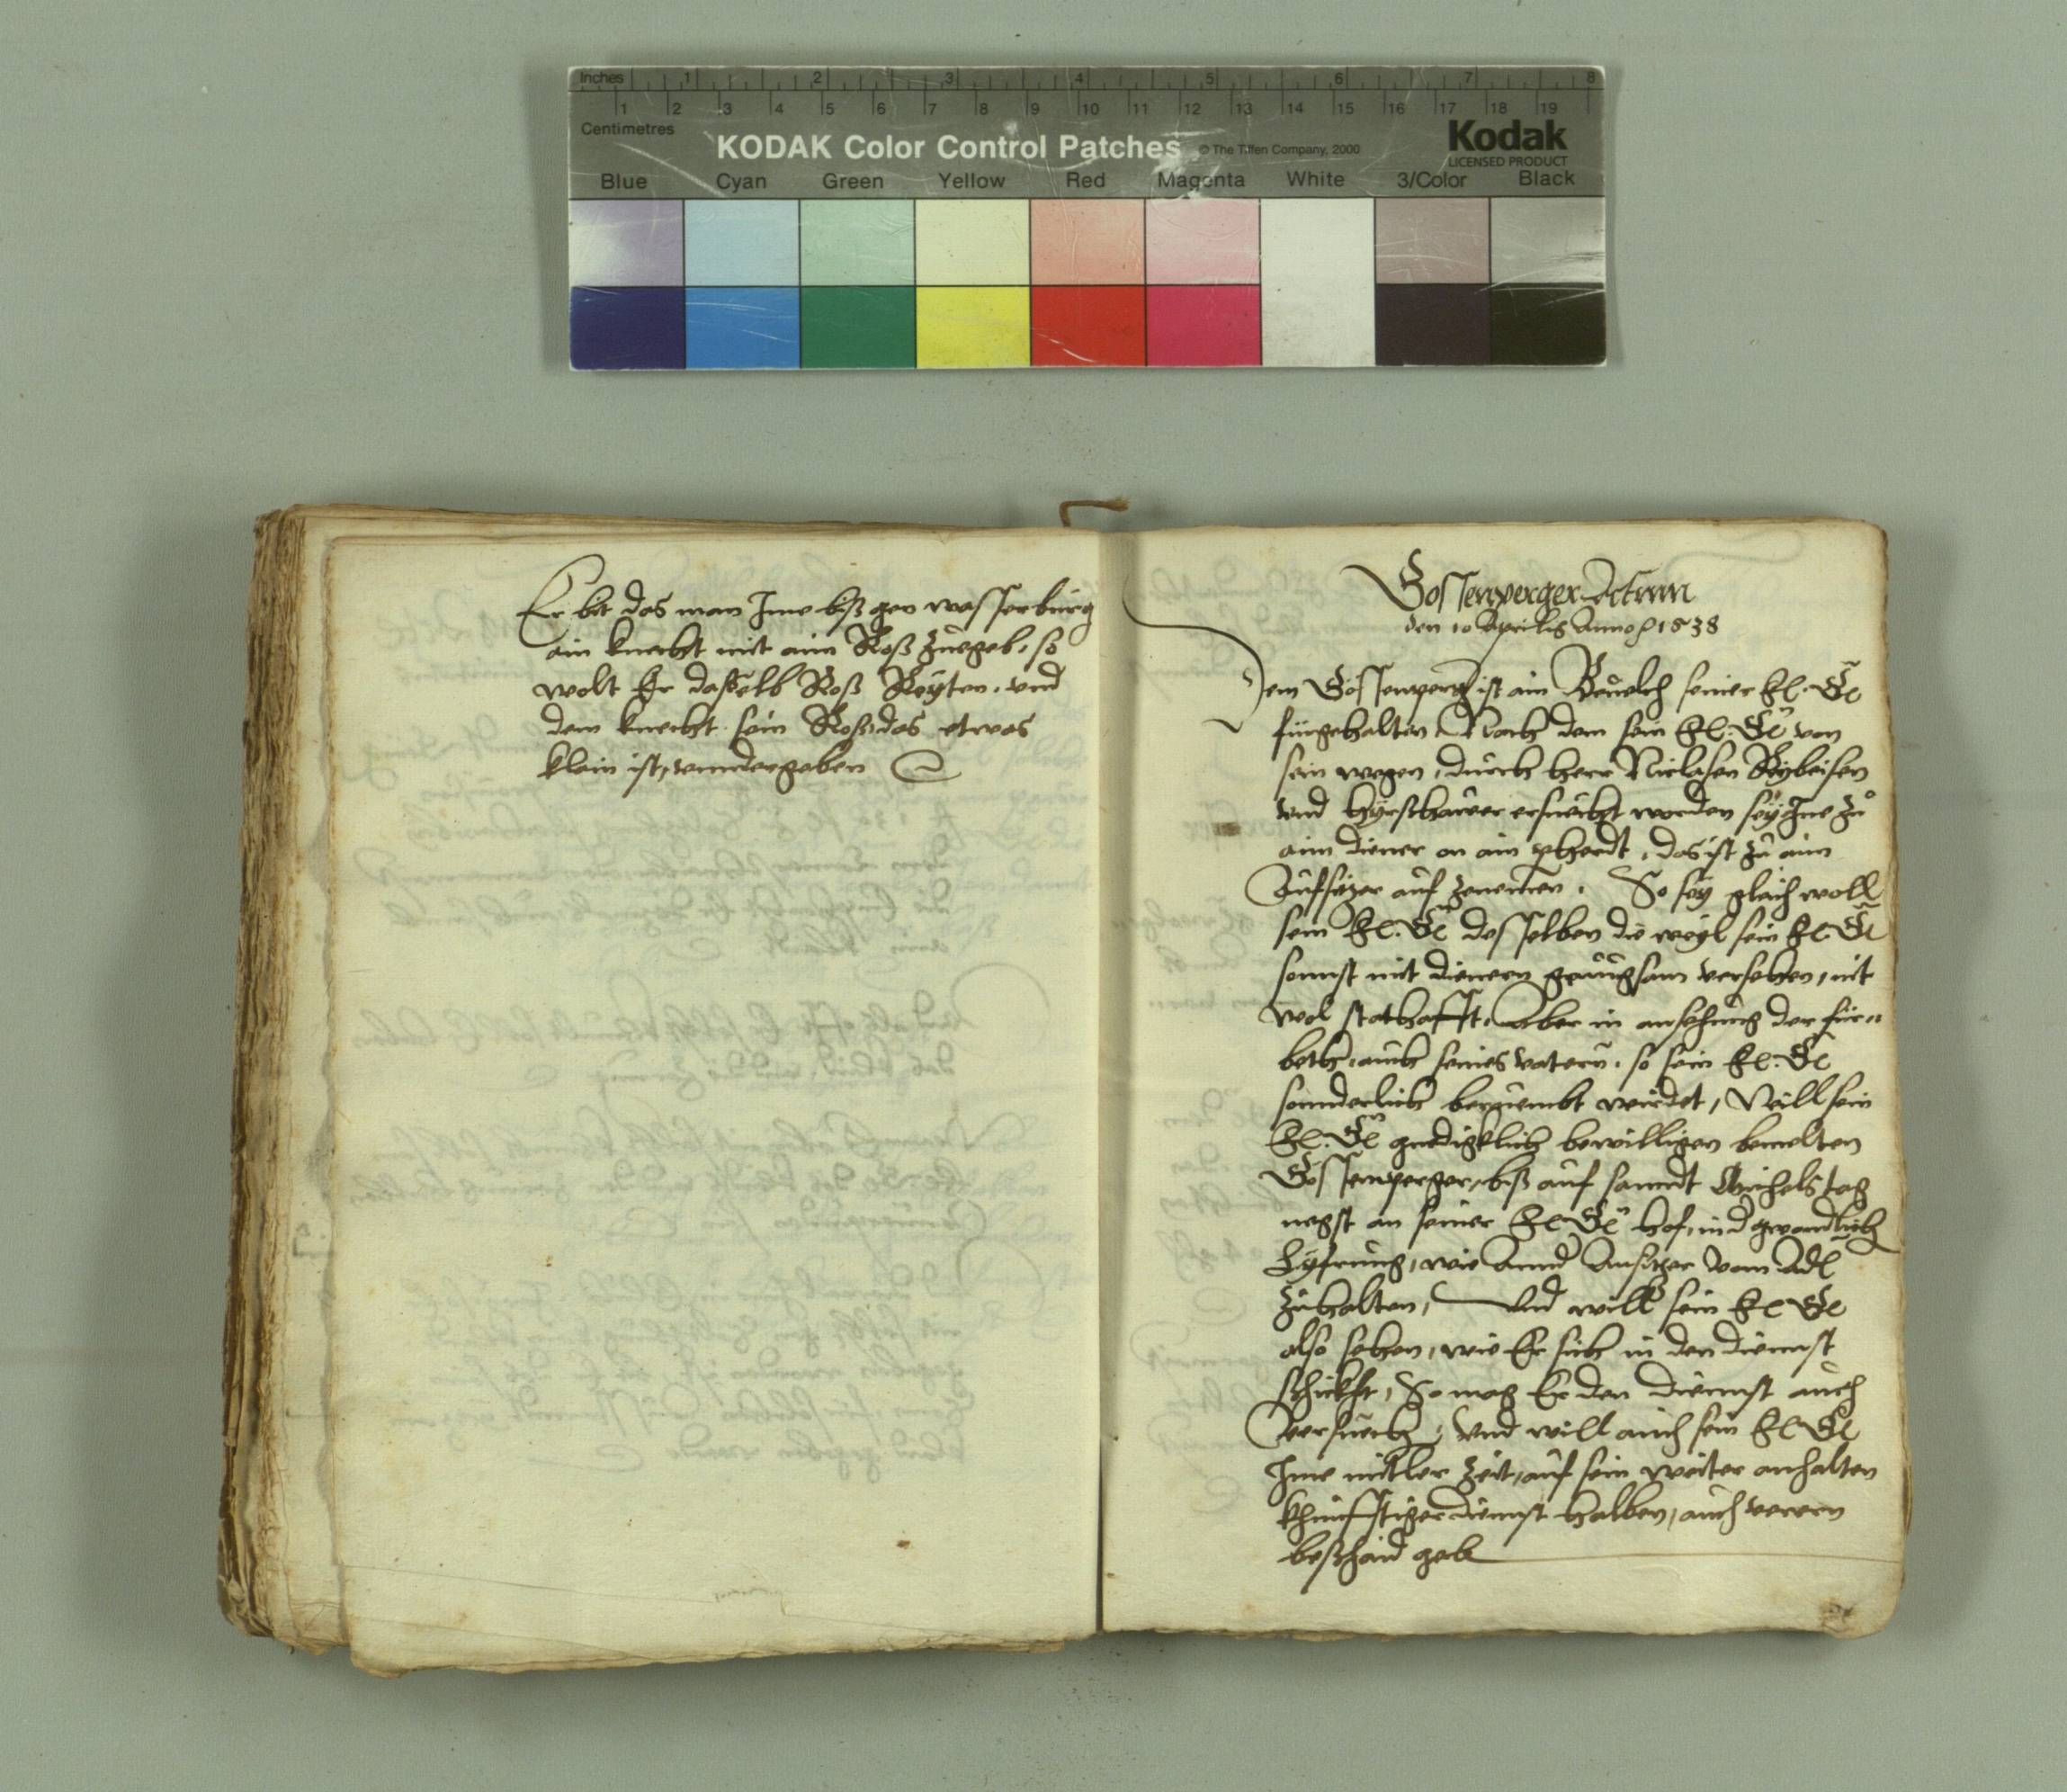 Inches 1 2 3 4 5 6 7 8
1 2 3 4 5 6 7 8 9 10 11 12 13 14 15 16 17 18 19
Centimetres
KODAK Color Control Patches © The Tiffen Company, 2000 Kodak
LICENSED PRODUCT
Blue Cyan Green Yellow Red Magenta White 3/Color Black
Er bit das man Ime biß gen wasserburg
ain knecht mit aim Roß zuegeb, so
wolt Er dasselb Roß Reyten, vnd
dem knecht sein Roß, das etwas
klain ist, vnndergeben
Gossenperger Actum
den 10 Aprilis Anno 1538
Dem Gossenperg ist ain Beuelch seiner
fürgehalten Nach dem sein von
sein wegen, durch herr Niclasen
vnd ersuecht worden sey Ine zu
aim diener on ain pherdt, das ist zu aim
auf zenemen. So sey gleich woll
sein desselben die weyl sein
sonnst mit dienern genuegsam versehen, nit
wol stathafft, Aber in ansehung der für„
beth, auch seines vatern, so sein
sonnderlich beruembt wirdet, Will sein
gnedigklich bewilligen bemelten
Gossenperger, biß auf sannd Michels tag
negst an seiner hof, in
wie vom Adl
zuhalten, Vnd will sein
also sehen, wie Er sich in den dienst
schickht, So mag Er den dienst auch
versuech, Vnd will auch sein
Ime mitler zeit, auf sein weiter anhalten
khünfftiger dienst halben, auch verern
beschaid geb